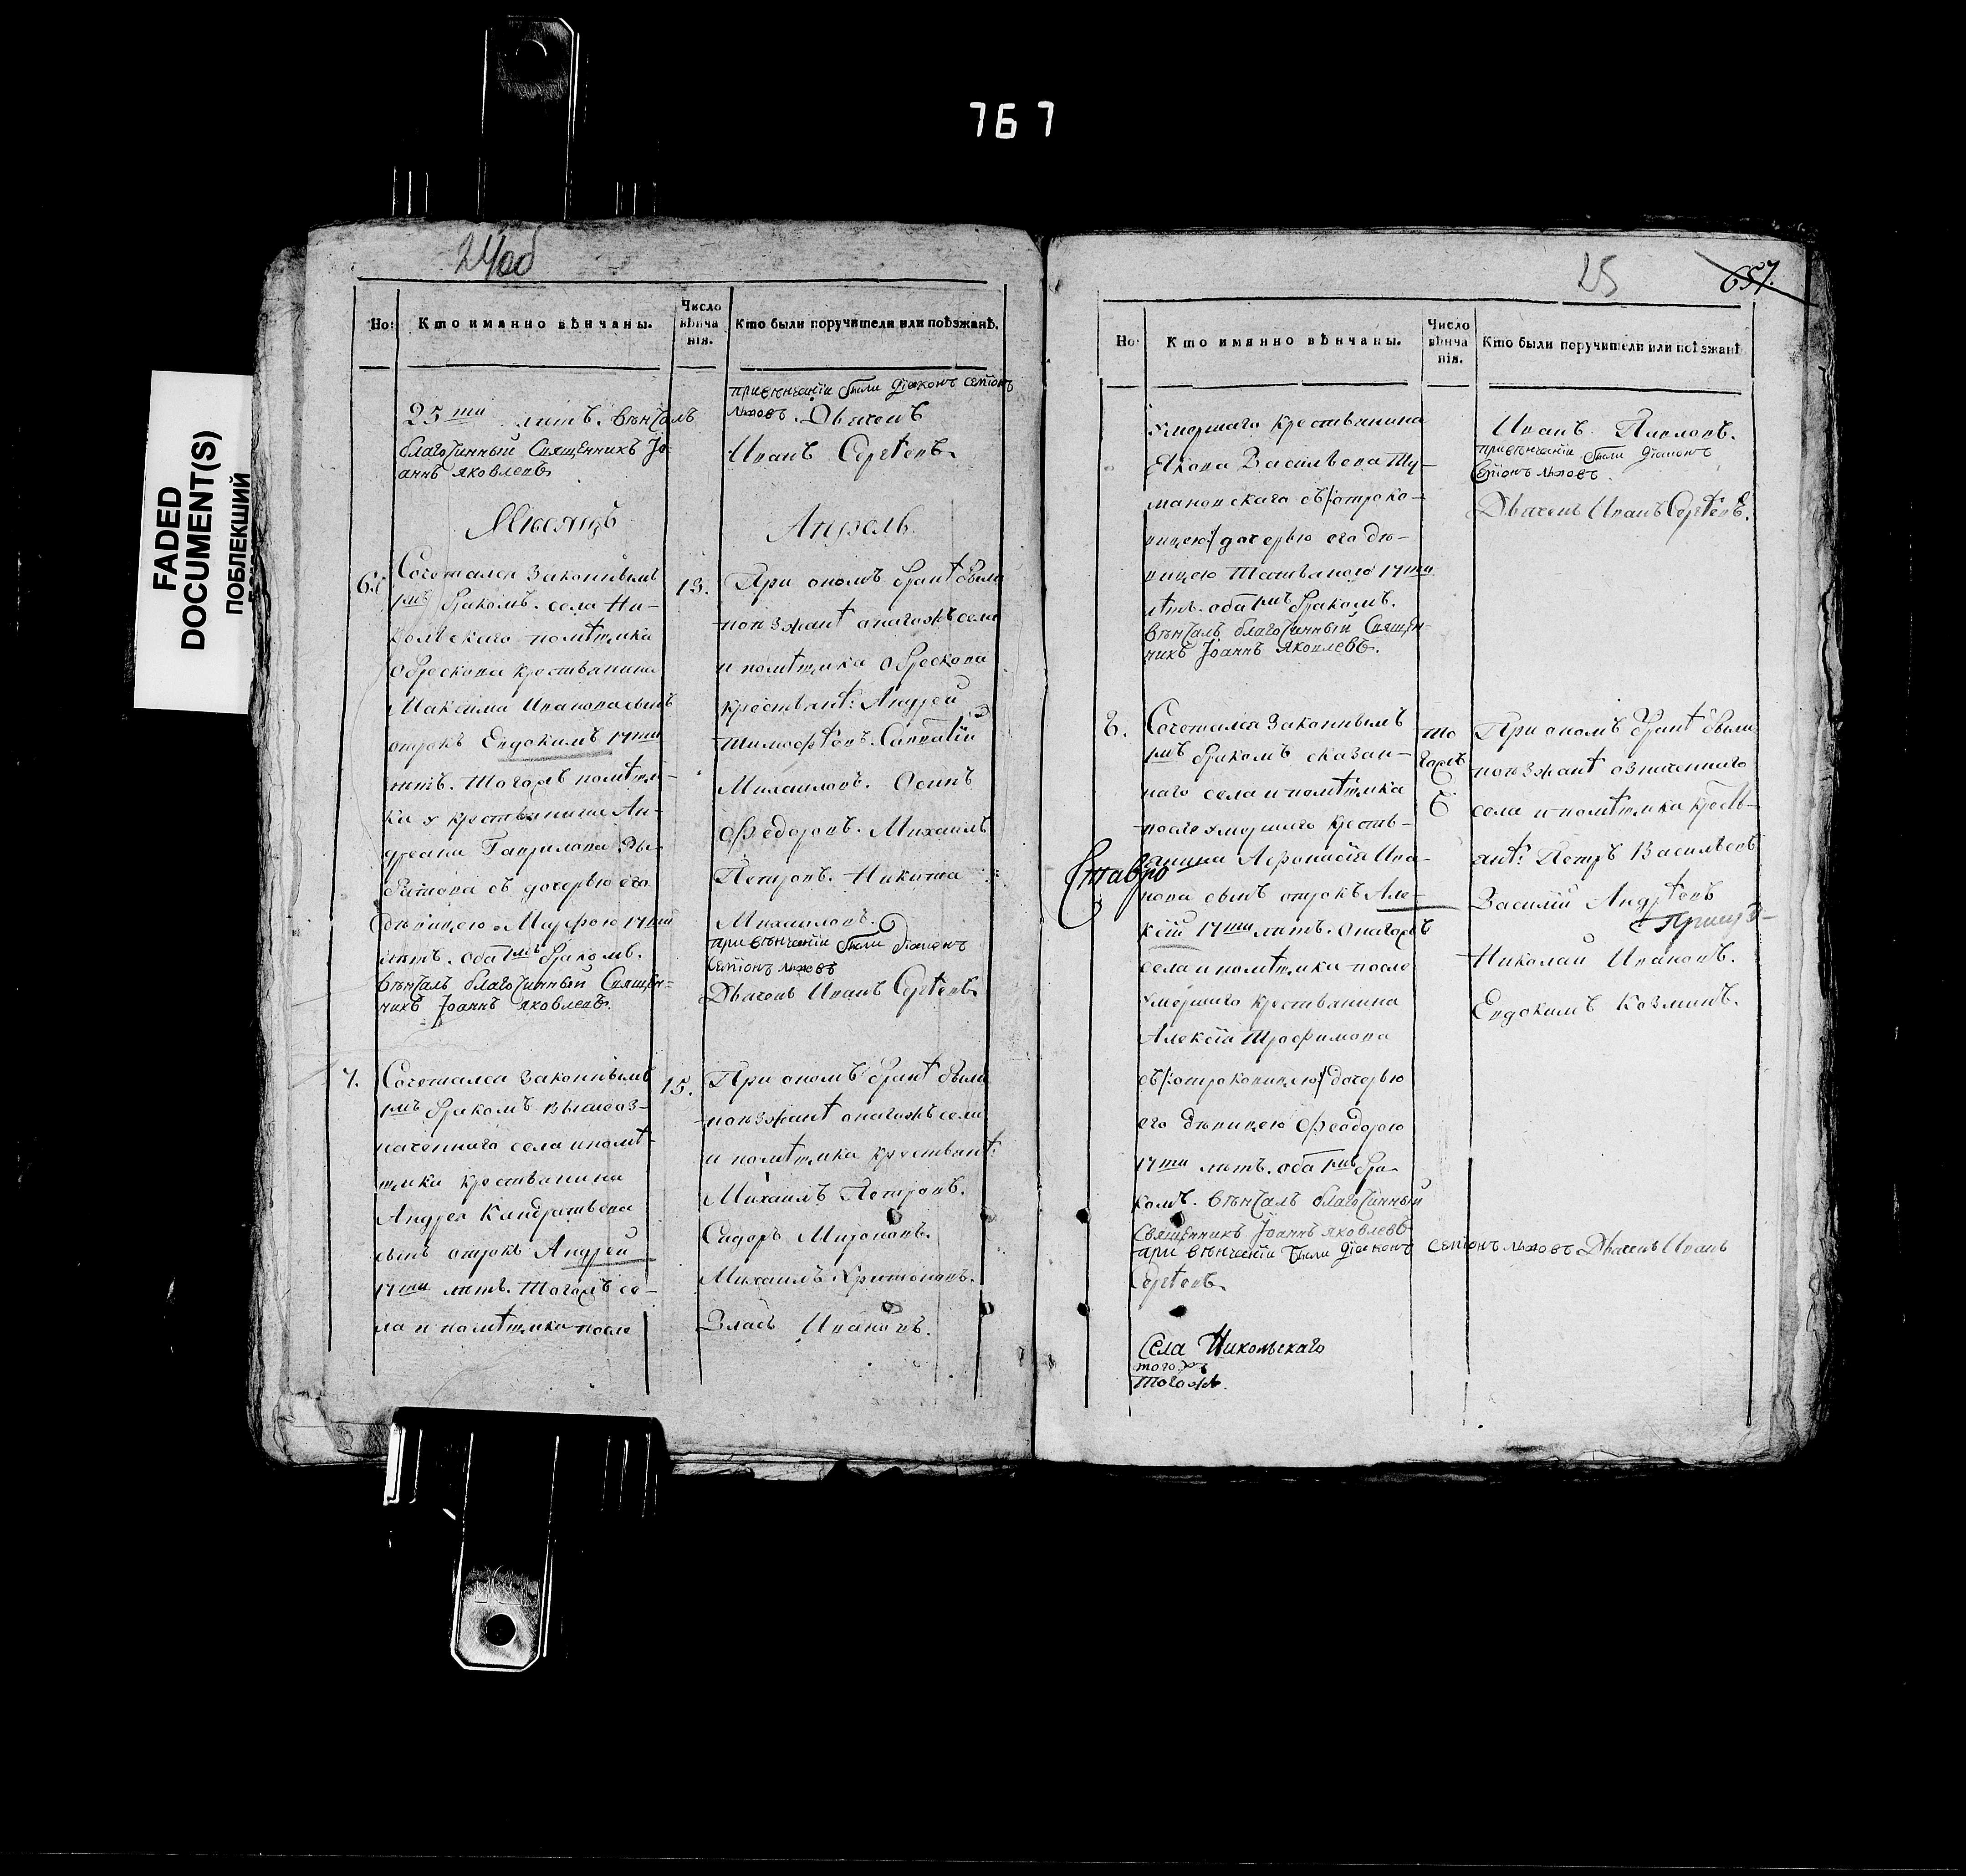 767
FADED
DOCUMENT(S)
ПОБЛЕКШИЙ
24об
Но:
Кто имянно вѣнчаны.
Число
вѣнча
нія.
Кто были поручители или поѣзжанѣ.
25ти лѣтъ. вѣнчалъ
благочинный Священникъ Іо-
аннъ Яковлевъ.
при вѣнчаніи были діаконъ Семіонъ
Дьячекъ
Иванъ Сергѣевъ.
Мѣсяцъ
Апрель.
6й
Сочетался законнымъ
1мъ бракомъ. села Ни-
кольскаго помѣщика
Обрескова крестьянина
Максима Иванова сынъ
отрокъ Евдокимъ 17ти
лѣтъ. тогожъ помѣщи-
ка у крестьянина Ан-
дреана Гаврилова
съ дочерью его
дѣвицею Марфою 17ти
лѣтъ. оба 1мъ бракомъ.
вѣнчалъ благочинный Священ-
никъ Іоаннъ Яковлевъ.
13.
При ономъ бракѣ были
поѣзжанѣ оногожъ села
и помѣщика Обрескова
крестьянѣ: Андрей
Тимофѣевъ. Савватій
Михаиловъ. Осипъ
Феодоровъ. Михаилъ
Петровъ. Никита
Михаиловъ.
при вѣнчаніи были діаконъ
Семіонъ
Дьячекъ Иванъ Сергѣевъ.
7.
Сочетался законнымъ
1мъ бракомъ вышеоз-
наченнаго села и помѣ-
щика крестьянина
Андрея Кандратьева
сынъ отрокъ Андрей
17ти лѣтъ. тогожъ се-
ла и помѣщика после
15.
При ономъ бракѣ были
поѣзжанѣ оногожъ села
и помѣщика крестьянѣ:
Михаилъ Петровъ.
Сидоръ Мироновъ.
Михаилъ
Власъ Ивановъ.
25
657.
Но:
Кто имянно вѣнчаны.
Число
вѣнча
нія.
Кто были поручители или поѣзжанѣ
умершаго крестьянина
Якова Васильева Ту-
мановскаго съ/:отроко-
вицею:/дочерью его дѣ-
вицею Татьяною 17ти
лѣтъ. оба 1мъ бракомъ.
вѣнчалъ благочинный Священ-
никъ Іоаннъ Яковлевъ.
Иванъ Павловъ.
при вѣнчаніи были діаконъ
Семіонъ
Дьячекъ Иванъ Сергѣевъ.
8.
Сочетался законнымъ
1мъ бракомъ сказан-
наго села и помѣщика
после умершаго кресть-
янина Афонасія Ива-
нова сынъ отрокъ Але-
ксій 17ти лѣтъ. оногожъ
села и помѣщика после
умершаго крестьянина
Алексія Трофимова
съ/:отроковицею:/дочерью
его дѣвицею Феодорою
17ти лѣтъ. оба 1мъ бра-
комъ. вѣнчалъ благочинный
Священникъ Іоаннъ Яковлевъ
при вѣнчаніи были діаконъ Семіонъ Дьячекъ Иванъ
Сергѣевъ.
то
гожъ
При ономъ бракѣ были
поѣзжанѣ означеннаго
села и помѣщика кресть-
янѣ: Петръ Васильевъ
Василій Андрѣевъ
Николай Ивановъ.
Евдокимъ Козминъ.
Ставро
Села Никольскаго
тогожъ
тогожъ.